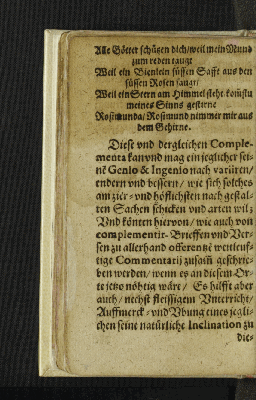 Alle Götter schützen dich/ weil mein Mund
zum reden taugt
Weil ein Bienlein süssen Safft aus den
süssen Rosen saugt/
Weil ein Stern am Himmel steht
meines Sinns gestirne
Rosimunda/ Rosimund nimmer mir aus
dem Gehirne.
Diese vnd dergleichen Comple-
menta kan vnd mag ein jeglicher sei-
nē Genio & Ingenio nach variiren/
endern vnd bessern/ wie sich solches
am zier- vnd höflichsten nach gestal-
ten Sachen schicken vnd arten wil;
Vnd könten hiervon/ wie auch von
complementir-Brieffen vnd Ver-
sen zu allerhand offerentz weitleuf-
tige Commentarij zusam̄ geschrie-
ben werden/ wenn es an diesem Or-
te jetzo nöhtig wäre/ Es hilfft aber
auch/ nechst fleissigem Vnterricht/
Auffmerck- vnd Vbung eines jegli-
chen seine natürliche Inclination zu
die-